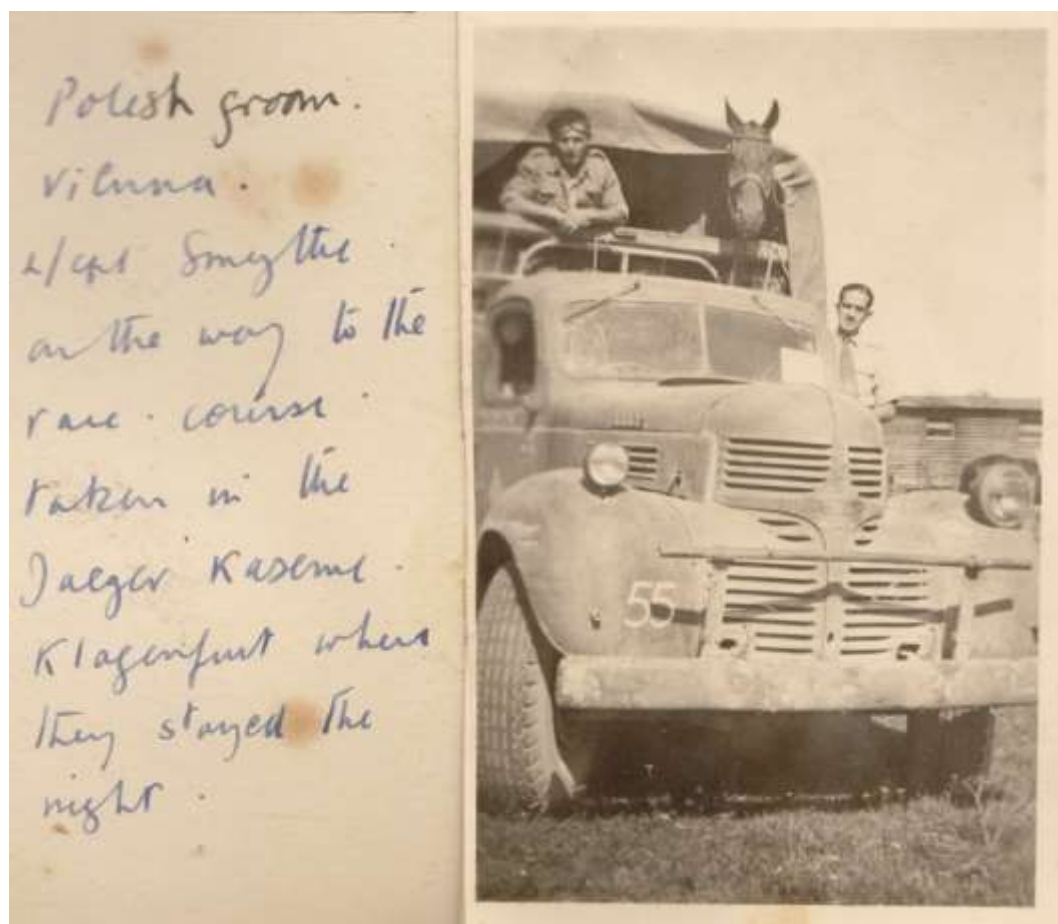 Polish groom.
Vienna.
L/cpl Smythe
on the way to the
race. course.
taken in the
Jaeger Kaserne.
Klagenfurt where
they stayed the
night.
55